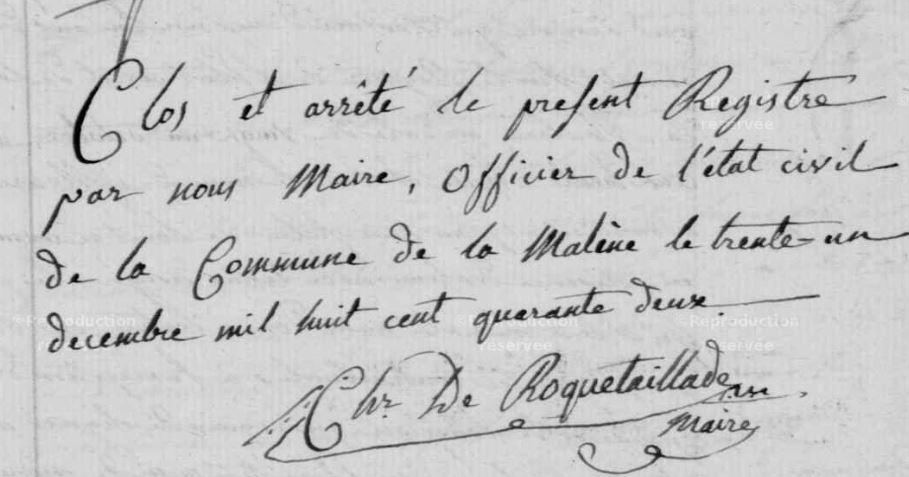 Clos et arrêté le présent Registre
par nous Maire, Officier de l'état civil
de la Commune de la Malène le trente-un
decembre mil huit cent quarante deux.
Chr De Roquetaillade
Maire
©Reproduction réservée
©Reproduction réservée
©Reproduction réservée